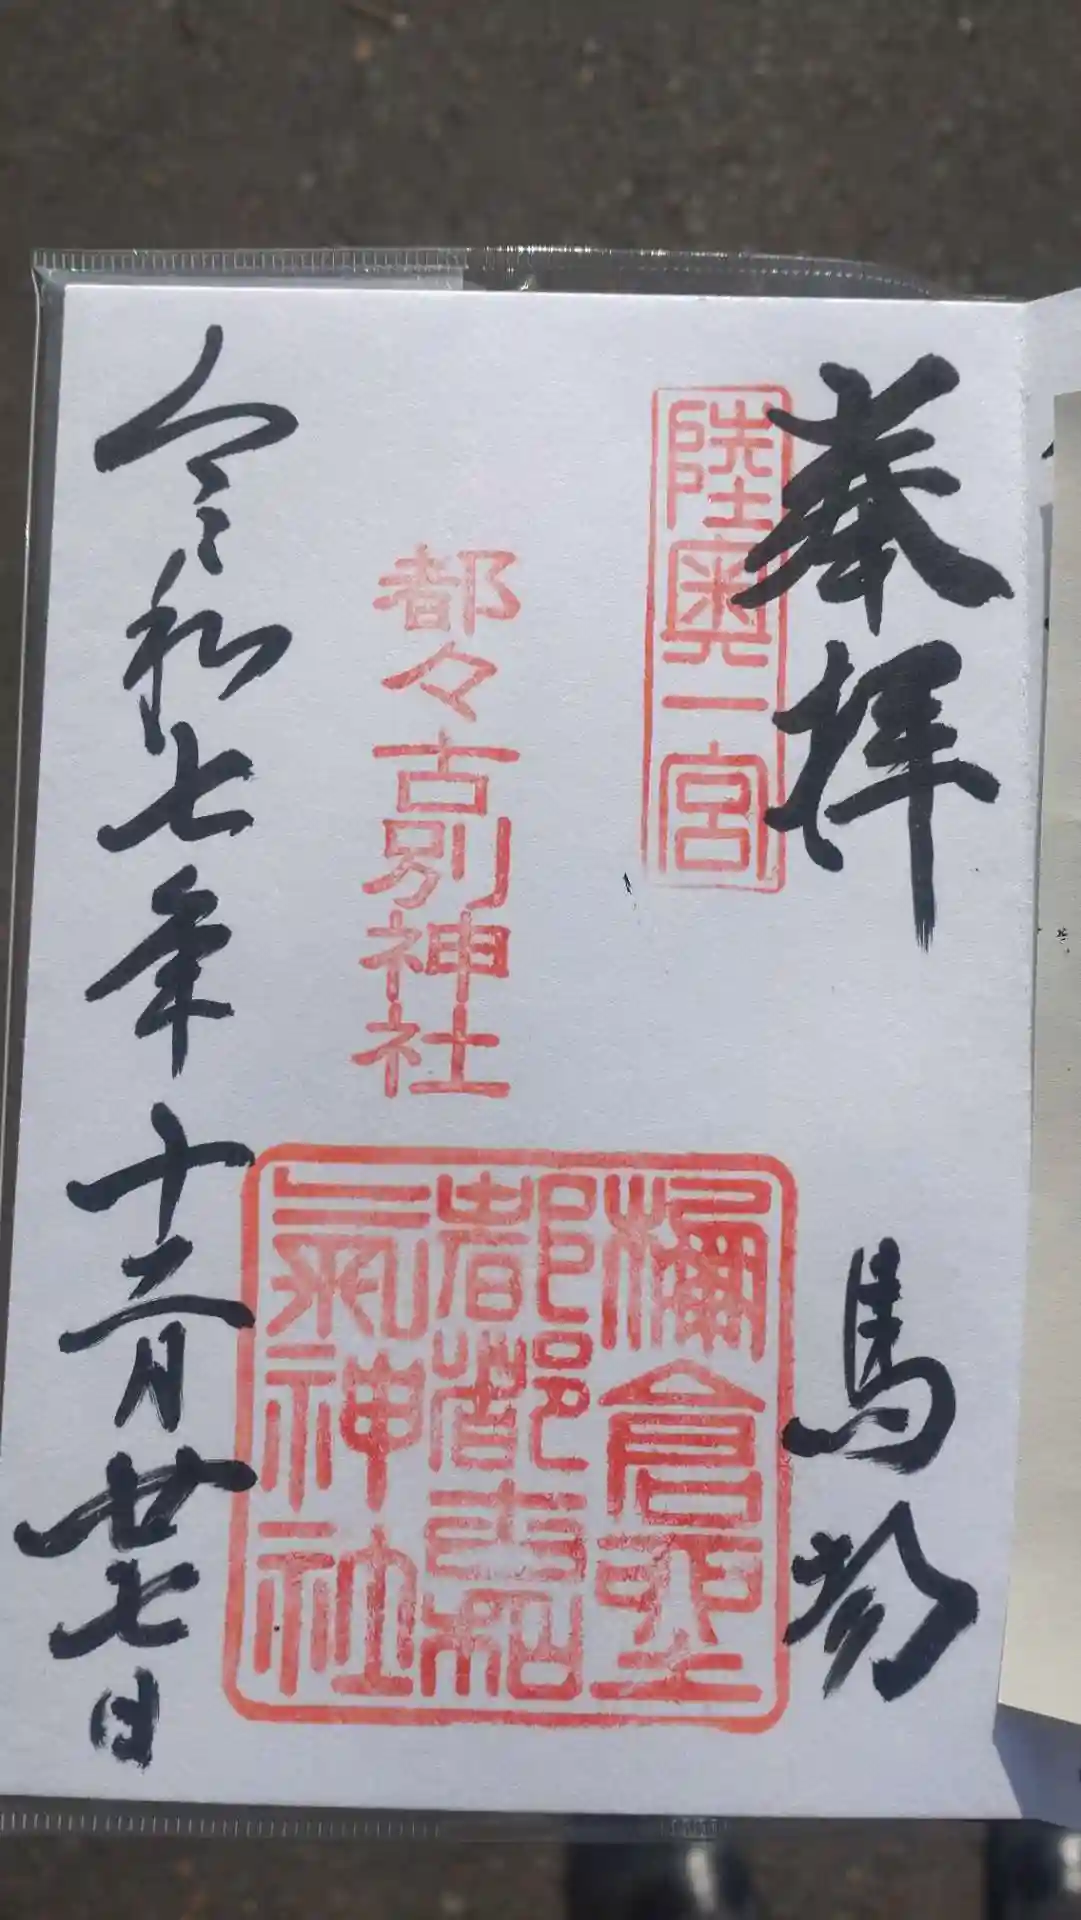 奉拝
馬場
陸奥一宮
都々古別神社
神社
令和七年十二月廿七日